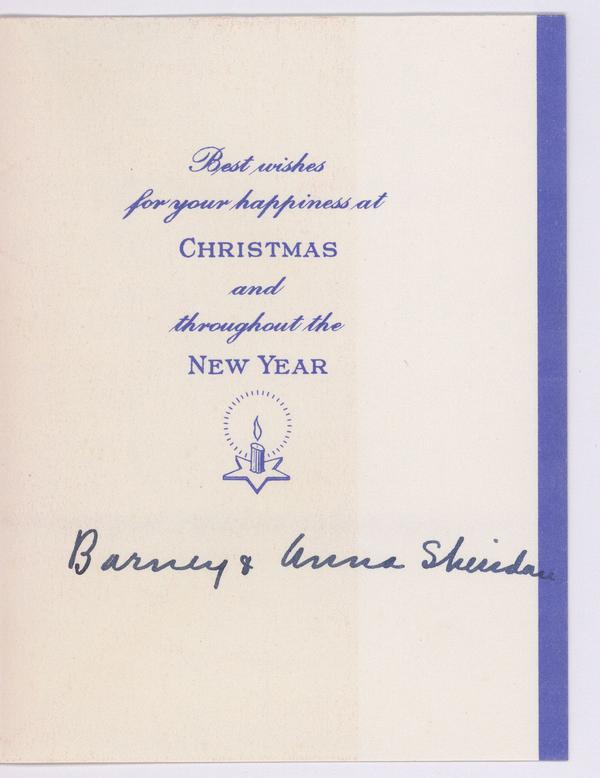 Best wishes
for your happiness at
CHRISTMAS
and
throughout the
NEW YEAR
Barney & Anna Sheridan